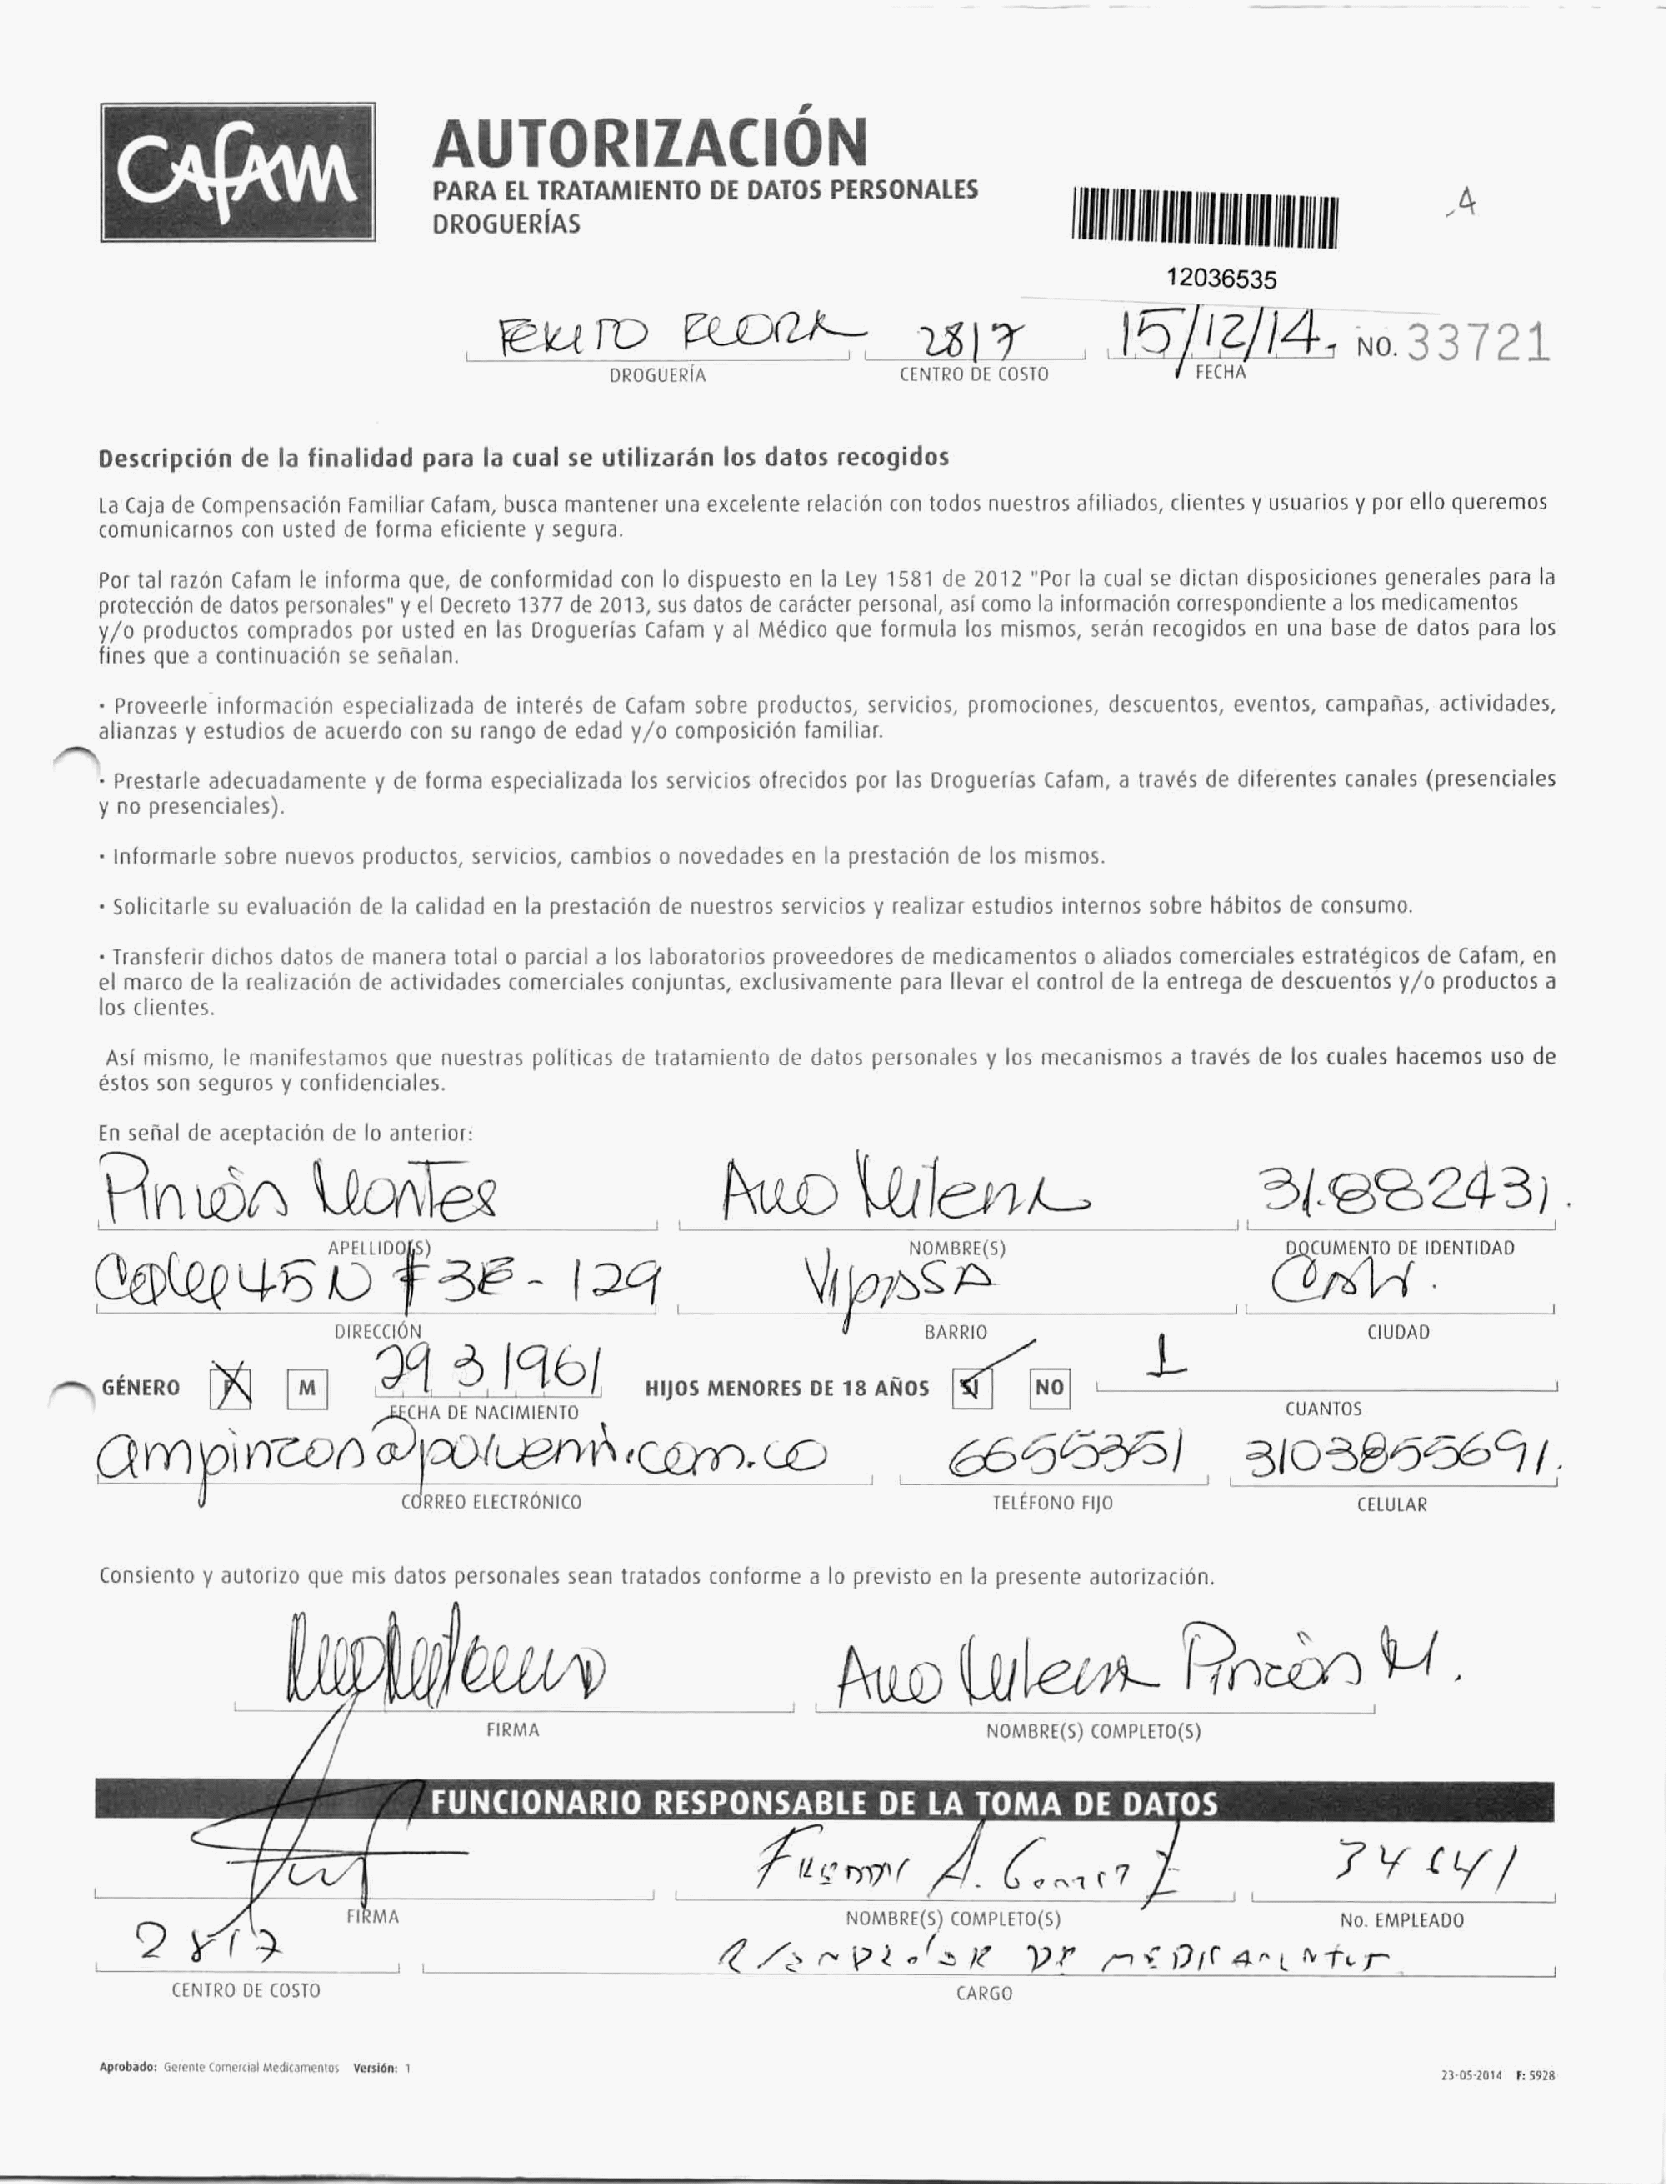 CAFAM
AUTORIZACIÓN
PARA EL TRATAMIENTO DE DATOS PERSONALES
DROGUERÍAS
4
12036535
2817 15/12/14 NO. 33721
DROGUERÍA CENTRO DE COSTO FECHA
Descripción de la finalidad para la cual se utilizarán los datos recogidos
La Caja de Compensación Familiar Cafam, busca mantener una excelente relación con todos nuestros afiliados, clientes y usuarios y por ello queremos
comunicarnos con usted de forma eficiente y segura.
Por tal razón Cafam le informa que, de conformidad con lo dispuesto en la Ley 1581 de 2012 "Por la cual se dictan disposiciones generales para la
protección de datos personales" y el Decreto 1377 de 2013, sus datos de carácter personal, así como la información correspondiente a los medicamentos
y/o productos comprados por usted en las Droguerías Cafam y al Médico que formula los mismos, serán recogidos en una base de datos para los
fines que a continuación se señalan.
· Proveerle información especializada de interés de Cafam sobre productos, servicios, promociones, descuentos, eventos, campañas, actividades,
alianzas y estudios de acuerdo con su rango de edad y/o composición familiar.
· Prestarle adecuadamente y de forma especializada los servicios ofrecidos por las Droguerías Cafam, a través de diferentes canales (presenciales
y no presenciales).
· Informarle sobre nuevos productos, servicios, cambios o novedades en la prestación de los mismos.
· Solicitarle su evaluación de la calidad en la prestación de nuestros servicios y realizar estudios internos sobre hábitos de consumo.
· Transferir dichos datos de manera total o parcial a los laboratorios proveedores de medicamentos o aliados comerciales estratégicos de Cafam, en
el marco de la realización de actividades comerciales conjuntas, exclusivamente para llevar el control de la entrega de descuentos y/o productos a
los clientes.
Así mismo, le manifestamos que nuestras políticas de tratamiento de datos personales y los mecanismos a través de los cuales hacemos uso de
éstos son seguros y confidenciales.
En señal de aceptación de lo anterior:
Pinzón Montes Ana Milena 31.882431.
APELLIDO(S) NOMBRE(S) DOCUMENTO DE IDENTIDAD
Calle 45N # 3E - 129 Vipasa Cali.
DIRECCIÓN BARRIO CIUDAD
GÉNERO M 29 3 1961 HIJOS MENORES DE 18 AÑOS SI NO 1
FECHA DE NACIMIENTO CUANTOS
6655351 3103855691.
CORREO ELECTRÓNICO TELÉFONO FIJO CELULAR
Consiento y autorizo que mis datos personales sean tratados conforme a lo previsto en la presente autorización.
Ana Milena Pinzón M.
FIRMA NOMBRE(S) COMPLETO(S)
FUNCIONARIO RESPONSABLE DE LA TOMA DE DATOS
A.
FIRMA NOMBRE(S) COMPLETO(S) No. EMPLEADO
2817 DE MEDICAMENTOS
CENTRO DE COSTO CARGO
Aprobado: Gerente Comercial Medicamentos Versión: 1
23-05-2014 F: 5928